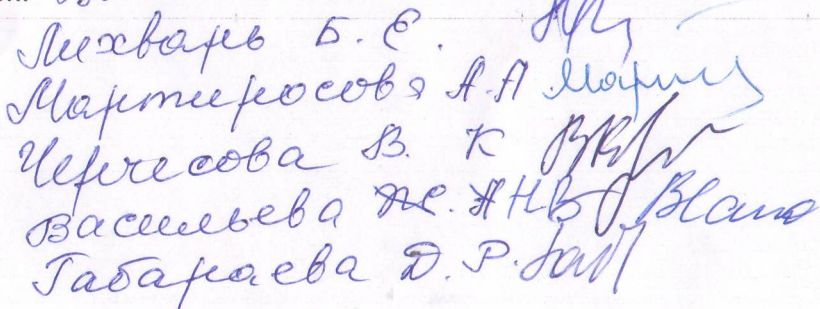 Лихварь Б. Е.
Мартиросова А. А
Черчесова В. К
Васильева Н В
Габараева Д. Р.